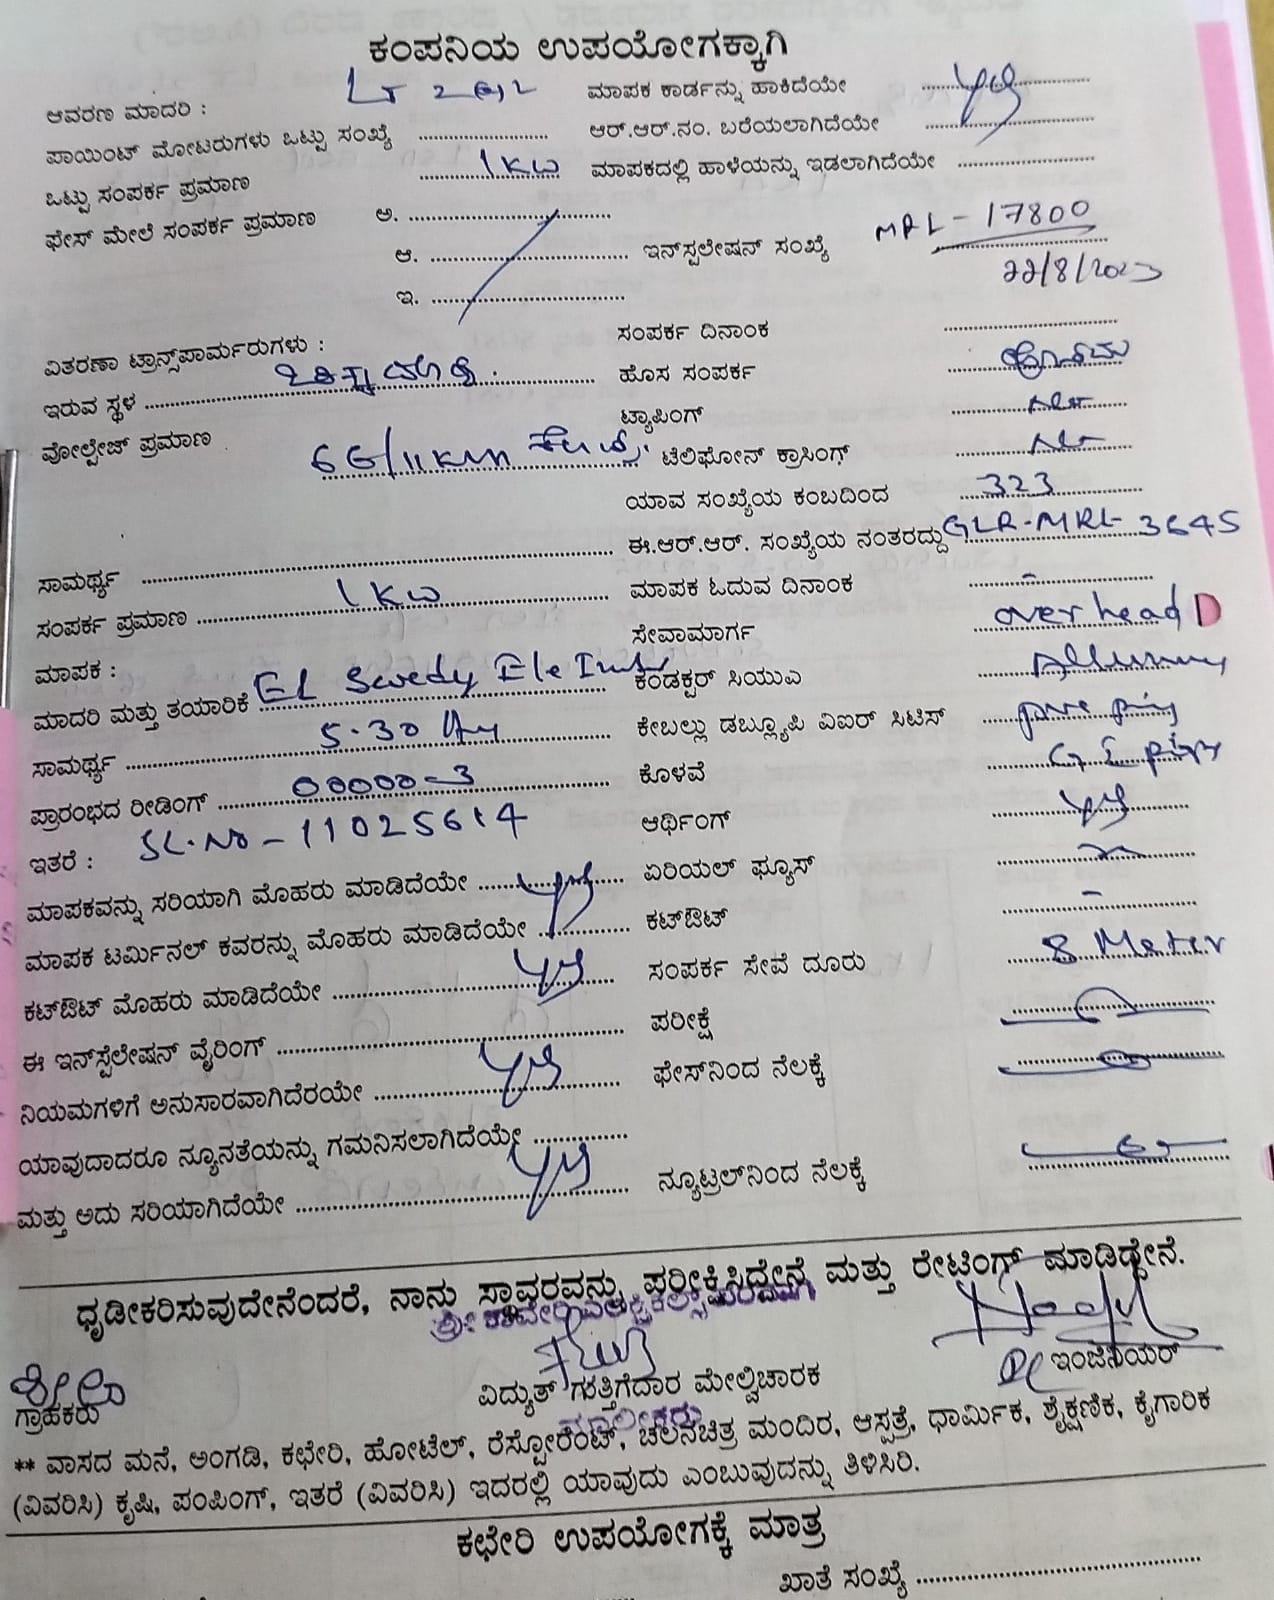 ಕಂಪನಿಯ ಉಪಯೋಗಕ್ಕಾಗಿ
ಆವರಣ ಮಾದರಿ : LT ಮಾಪಕ ಕಾರ್ಡನ್ನು ಹಾಕಿದೆಯೇ yes
ಪಾಯಿಂಟ್ ಮೋಟರುಗಳು ಒಟ್ಟು ಸಂಖ್ಯೆ ಆರ್.ಆರ್.ನಂ. ಬರೆಯಲಾಗಿದೆಯೇ
ಒಟ್ಟು ಸಂಪರ್ಕ ಪ್ರಮಾಣ 1KW ಮಾಪಕದಲ್ಲಿ ಹಾಳೆಯನ್ನು ಇಡಲಾಗಿದೆಯೇ
ಫೇಸ್ ಮೇಲೆ ಸಂಪರ್ಕ ಪ್ರಮಾಣ ಅ.
ಆ. ಇನ್‌ಸ್ಪಲೇಷನ್ ಸಂಖ್ಯೆ MRL - 17800
ಇ. 22/8/2023
ವಿತರಣಾ ಟ್ರಾನ್ಸ್‌ಪಾರ್ಮರುಗಳು : ಸಂಪರ್ಕ ದಿನಾಂಕ
ಇರುವ ಸ್ಥಳ ಹೊಸ ಸಂಪರ್ಕ
ವೋಲ್ಟೇಜ್ ಪ್ರಮಾಣ ಟ್ಯಾಪಿಂಗ್
66/11KV ಟೆಲಿಫೋನ್ ಕ್ರಾಸಿಂಗ್
ಯಾವ ಸಂಖ್ಯೆಯ ಕಂಬದಿಂದ 323
ಸಾಮರ್ಥ್ಯ ಈ.ಆರ್.ಆರ್. ಸಂಖ್ಯೆಯ ನಂತರದ್ದು GLR-MRL-3645
ಸಂಪರ್ಕ ಪ್ರಮಾಣ 1KW ಮಾಪಕ ಓದುವ ದಿನಾಂಕ -
ಮಾಪಕ : ಸೇವಾಮಾರ್ಗ over head
ಮಾದರಿ ಮತ್ತು ತಯಾರಿಕೆ EL Swedy Ele ಕಂಡಕ್ಟರ್ ಸಿಯುಎ
ಸಾಮರ್ಥ್ಯ 5-30 ಕೇಬಲ್ಲು ಡಬ್ಲ್ಯೂಪಿ ವಿಐರ್ ಸಿಟಿಸ್
ಪ್ರಾರಂಭದ ರೀಡಿಂಗ್ 00000-3 ಕೊಳವೆ
ಇತರೆ : SL.No - 11025614 ಆರ್ಥಿಂಗ್ yes
ಮಾಪಕವನ್ನು ಸರಿಯಾಗಿ ಮೊಹರು ಮಾಡಿದೆಯೇ yes ಏರಿಯಲ್ ಫ್ಯೂಸ್
ಮಾಪಕ ಟರ್ಮಿನಲ್ ಕವರನ್ನು ಮೊಹರು ಮಾಡಿದೆಯೇ ಕಟ್‌ಔಟ್ -
ಕಟ್‌ಔಟ್ ಮೊಹರು ಮಾಡಿದೆಯೇ yes ಸಂಪರ್ಕ ಸೇವೆ ದೂರು 8 Meter
ಈ ಇನ್‌ಸ್ಪೆಲೇಷನ್ ವೈರಿಂಗ್ ಪರೀಕ್ಷೆ
ನಿಯಮಗಳಿಗೆ ಅನುಸಾರವಾಗಿದೆರಯೇ yes ಫೇಸ್‌ನಿಂದ ನೆಲಕ್ಕೆ
ಯಾವುದಾದರೂ ನ್ಯೂನತೆಯನ್ನು ಗಮನಿಸಲಾಗಿದೆಯೇ
ಮತ್ತು ಅದು ಸರಿಯಾಗಿದೆಯೇ yes ನ್ಯೂಟ್ರಲ್‌ನಿಂದ ನೆಲಕ್ಕೆ
ಧೃಡೀಕರಿಸುವುದೇನೆಂದರೆ, ನಾನು ಸ್ಥಾವರವನ್ನು ಪರೀಕ್ಷಿಸಿದ್ದೇನೆ ಮತ್ತು ರೇಟಿಂಗ್ ಮಾಡಿದ್ದೇನೆ.
ಗ್ರಾಹಕರು ವಿದ್ಯುತ್ ಗುತ್ತಿಗೆದಾರ ಮೇಲ್ವಿಚಾರಕ ಇಂಜಿನಿಯರ್
ಮಾಲೀಕರು
** ವಾಸದ ಮನೆ, ಅಂಗಡಿ, ಕಛೇರಿ, ಹೋಟೆಲ್, ರೆಸ್ಟೋರೆಂಟ್, ಚಲನಚಿತ್ರ ಮಂದಿರ, ಆಸ್ಪತ್ರೆ, ಧಾರ್ಮಿಕ, ಶೈಕ್ಷಣಿಕ, ಕೈಗಾರಿಕ
(ವಿವರಿಸಿ) ಕೃಷಿ, ಪಂಪಿಂಗ್, ಇತರೆ (ವಿವರಿಸಿ) ಇದರಲ್ಲಿ ಯಾವುದು ಎಂಬುವುದನ್ನು ತಿಳಿಸಿರಿ.
ಕಛೇರಿ ಉಪಯೋಗಕ್ಕೆ ಮಾತ್ರ
ಖಾತೆ ಸಂಖ್ಯೆ